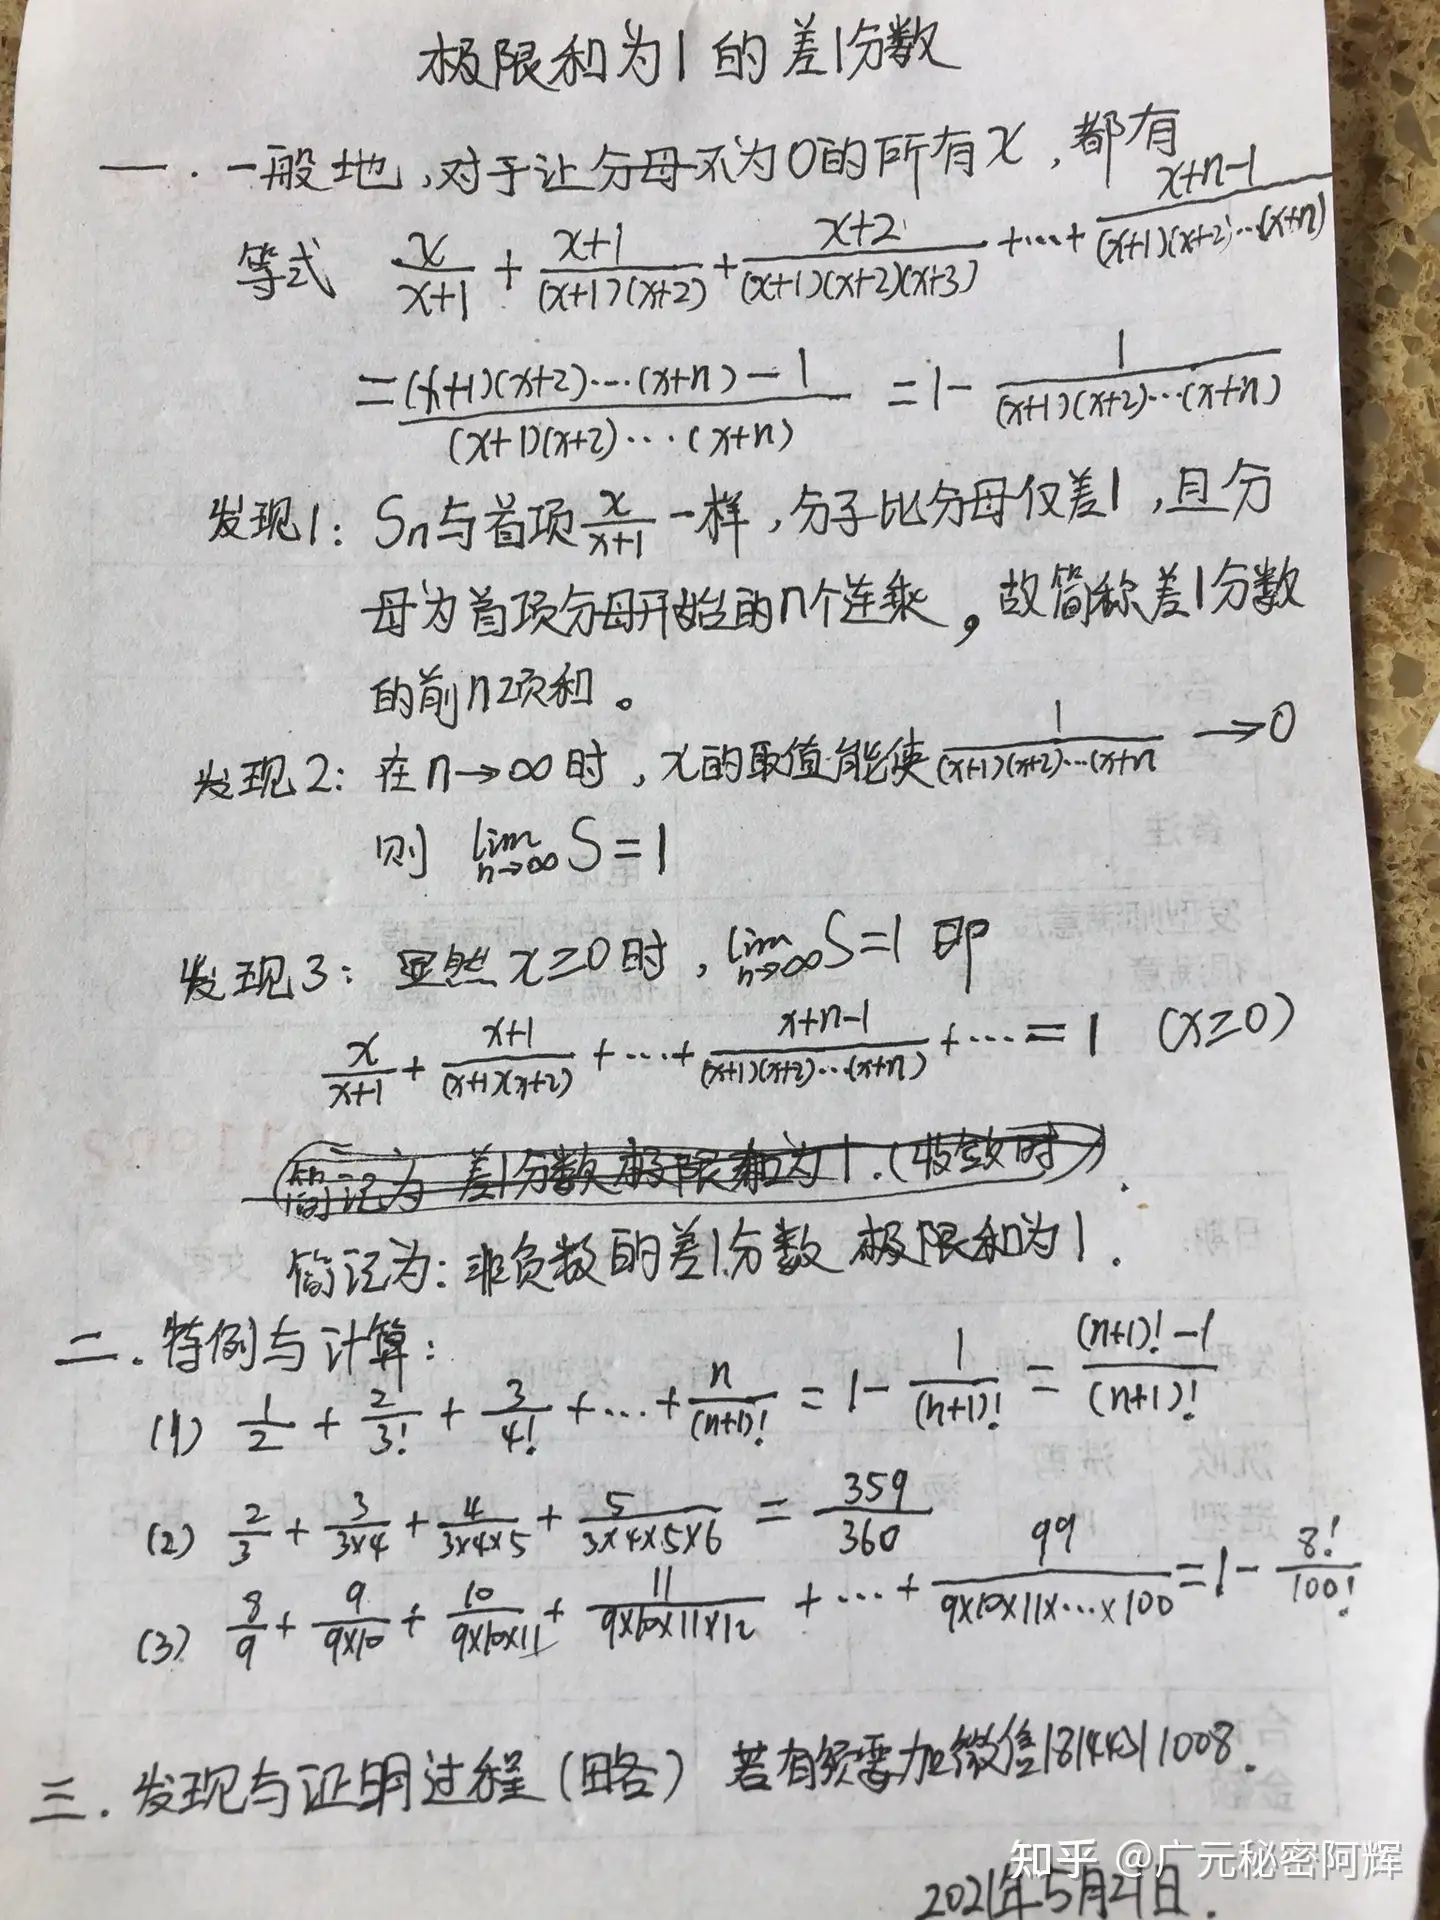 极限和为1的差1分数
一.一般地,对于让分母不为0的所有x,都有
等式 x/(x+1) + (x+1)/((x+1)(x+2)) + (x+2)/((x+1)(x+2)(x+3)) +…+ (x+n-1)/((x+1)(x+2)…(x+n))
= ((x+1)(x+2)…(x+n)-1)/((x+1)(x+2)…(x+n)) = 1- 1/((x+1)(x+2)…(x+n))
发现1: Sn与首项 x/(x+1) 一样,分子比分母仅差1,且分
母为首项分母开始的n个连乘。故简称差1分数
的前n项和。
发现2: 在n→∞时,x的取值能使 1/((x+1)(x+2)…(x+n) →0
则 lim n→∞ S=1
发现3: 显然x≥0时, lim n→∞ S=1 即
x/(x+1) + (x+1)/((x+1)(x+2)) +…+ (x+n-1)/((x+1)(x+2)…(x+n)) +…=1 (x≥0)
简记为 差1分数极限和为1.(收敛时)
简记为:非负数的差1分数 极限和为1.
二.特例与计算:
(1) 1/2 + 2/3! + 3/4! +…+ n/(n+1)! = 1- 1/(n+1)! = ((n+1)!-1)/(n+1)!
(2) 2/3 + 3/(3×4) + 4/(3×4×5) + 5/(3×4×5×6) = 359/360
(3) 8/9 + 9/(9×10) + 10/(9×10×11) + 11/(9×10×11×12) +…+ 99/(9×10×11×…×100) = 1- 8!/100!
三.发现与证明过程(略) 若有须要加微信
知乎 @广元秘密阿辉
2021年5月21日.